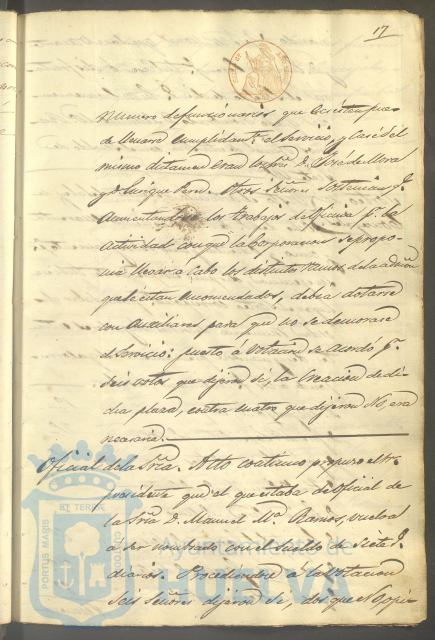 17
numero de funcionarios que existen pue-
de llenarse cumplidamte. el servicio, y casi del
mismo dictamen eran los Sres. D. José de Mora
y D. Enrique Peru. Otros Señores sostenian q.
aumentandose los trabajos de oficina pr. la
actividad con que la Corporacion se propo-
nia llevar á cabo los distintos ramos de la admon
que le estan encomendados, debia dotarse
con Auxiliares para que no se demorase
el servicio: puesto á votacion se acordó pr.
seis votos que dijeron si, la creacion de di-
cha plaza, contra cuatro que dijeron No era
necesaria.
Oficial de la Sria. Acto continuo propuso el Sr.
Presidente que el que estaba de oficial de
la Sria. D. Manuel Ma. Ramos, vuelva
a ser nombrado con el sueldo de siete r.
diarios. Procediendose á la votacion
seis Señores dijeron si, dos que No, opi-
PORTUS MARIS
ET TERRAE
CUSTODIA
Ayuntamiento de
HUELVA